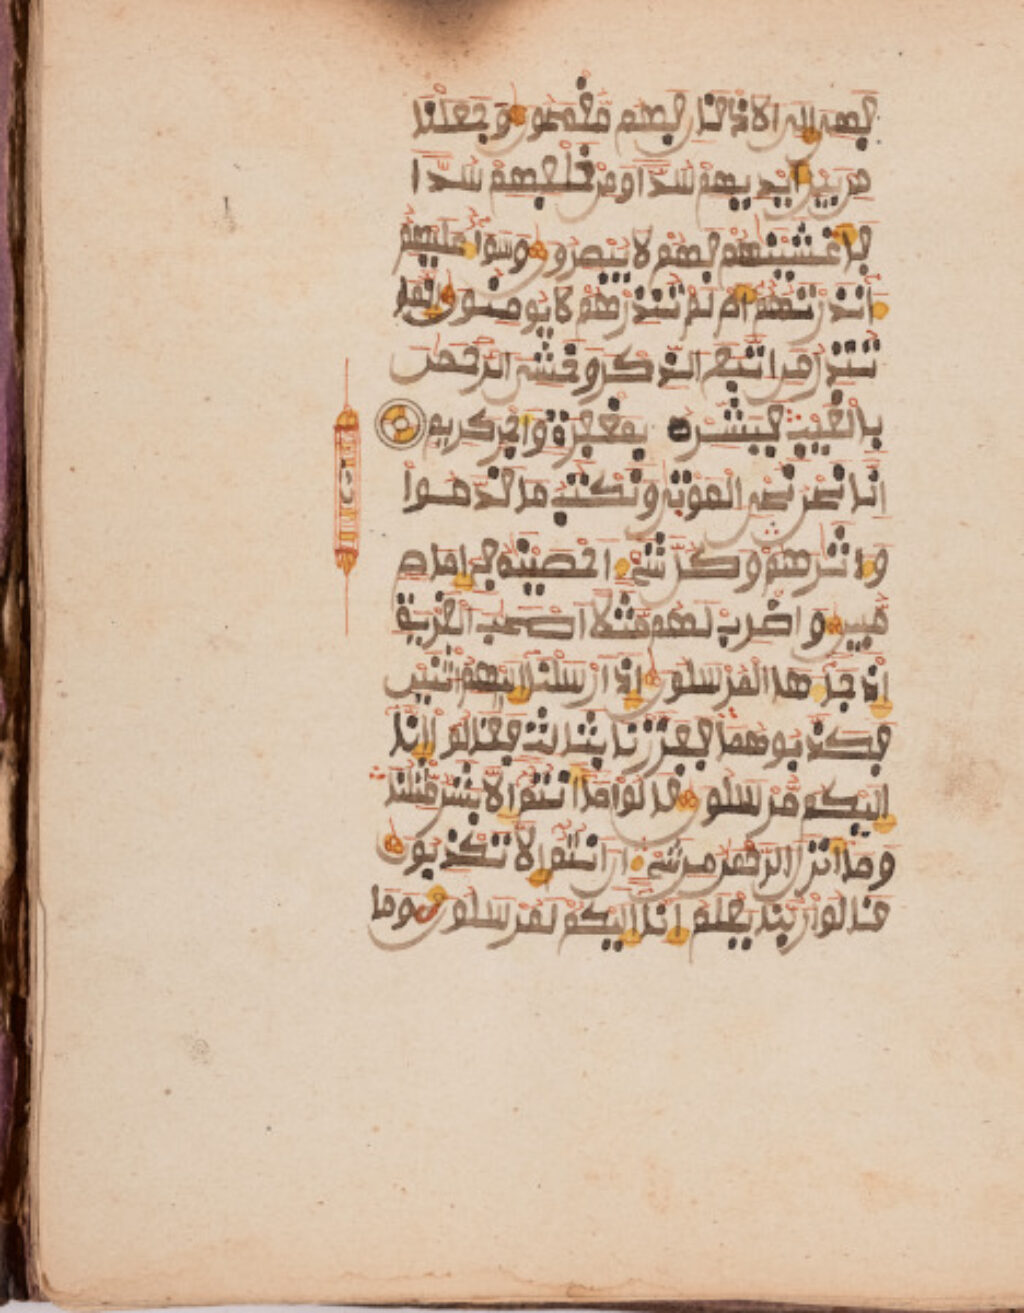 فهى الى الاذقان فهم مقمحون وجعلنا
من بين ايديهم سدا ومن خلفهم سدا
فاغشينهم فهم لا يبصرون وسوا عليهم
انذرتهم ام لم تنذرهم لا يومنون انما
تنذر من اتبع الذكر وخشى الرحمن
بالغيب فبشره بمغفرة واجر كريم
انا نحن نحى الموتى ونكتب ما قدموا
واثرهم وكل شى احصينه فى امام
مبين واضرب لهم مثلا اصحب القرية
اذ جاها المرسلون اذ ارسلنا اليهم اثنين
فكذبوهما فعززنا بثالث فقالوا انا
اليكم مرسلون قالوا ما انتم الا بشر مثلنا
وما انزل الرحمن من شى ان انتم الا تكذبون
قالوا ربنا يعلم انا اليكم لمرسلون وما